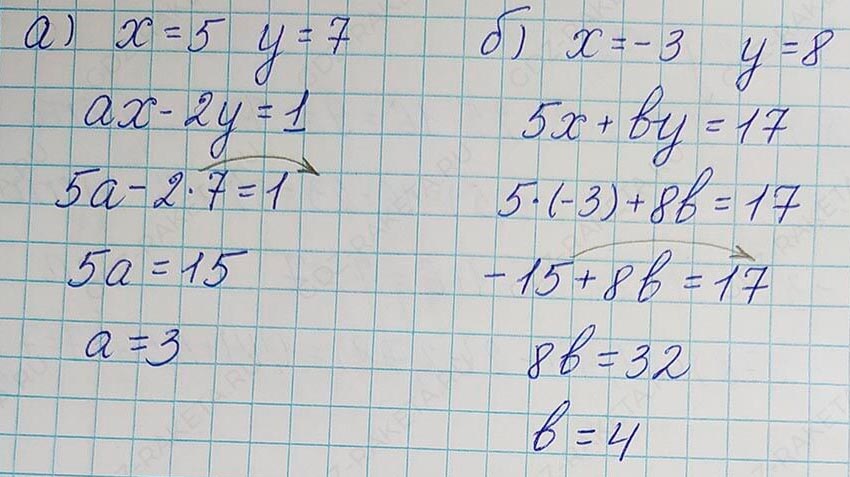 а) x = 5 y = 7
ax - 2y = 1
5a - 2·7 = 1
5a = 15
a = 3
б) x = -3 y = 8
5x + by = 17
5·(-3) + 8b = 17
-15 + 8b = 17
8b = 32
b = 4